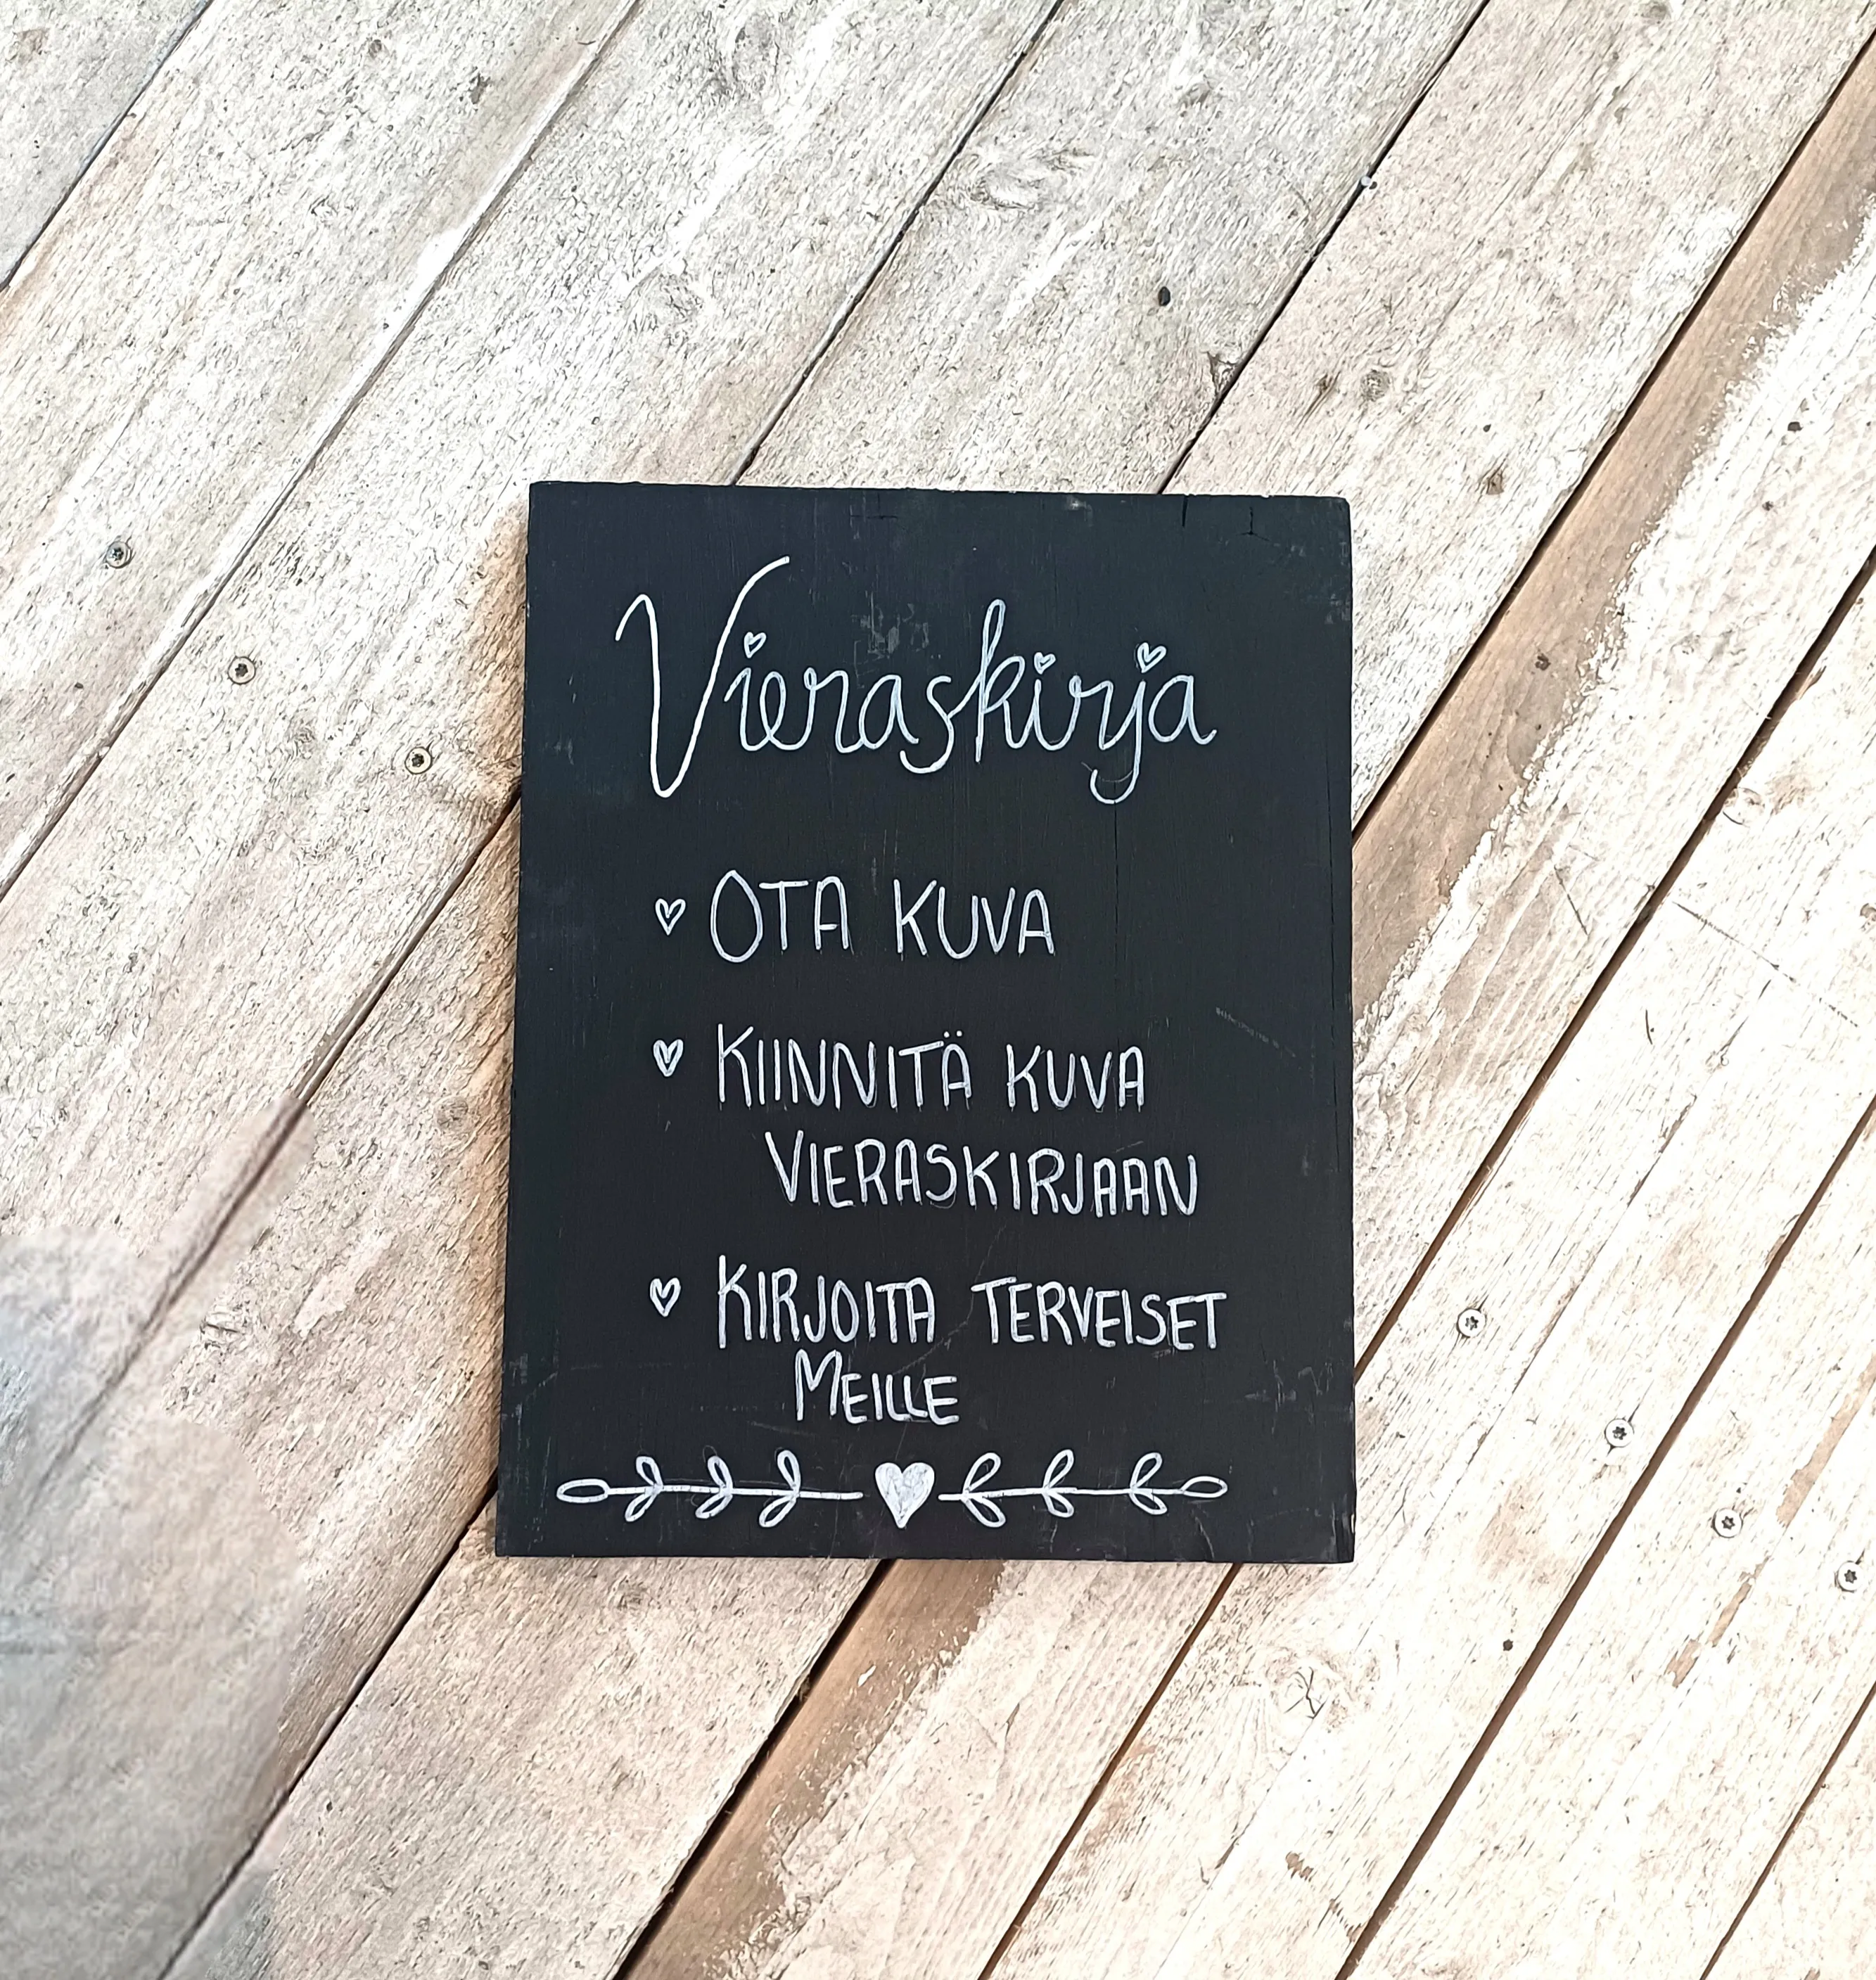 Vieraskirja
OTA KUVA
KIINNITÄ KUVA
VIERASKIRJAAN
KIRJOITA TERVEISET
MEILLE